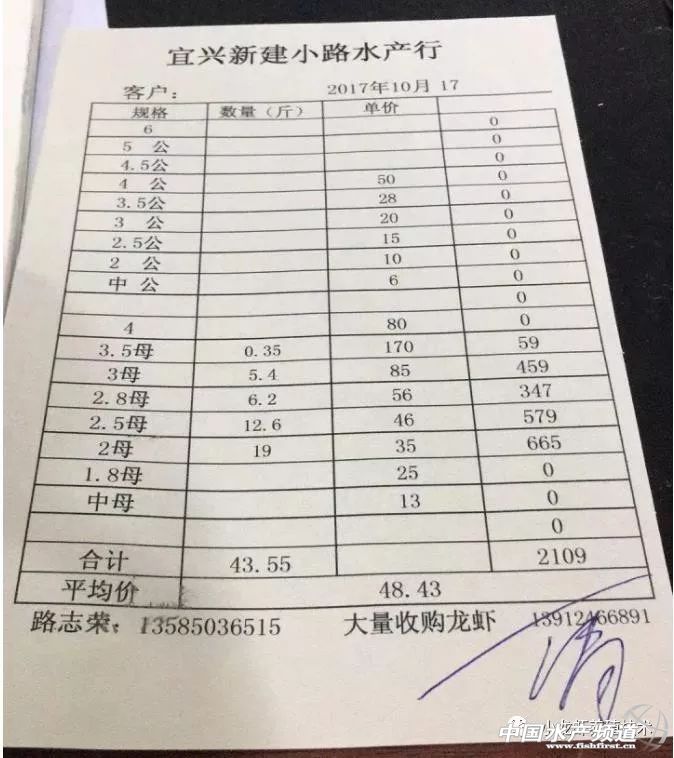 宜兴新建小路水产行
客户： 2017年10月 17
规格 数量（斤） 单价
6 0
5 公 0
4.5公 0
4 公 50 0
3.5公 28 0
3 公 20 0
2.5公 15 0
2 公 10 0
中 公 6 0
0
4 80 0
3.5母 0.35 170 59
3母 5.4 85 459
2.8母 6.2 56 347
2.5母 12.6 46 579
2母 19 35 665
1.8母 25 0
中母 13 0
0
合计 43.55 2109
平均价 48.43
路志荣： 13585036515 大量收购龙虾 13912466891
中国水产频道
www.fishfirst.cn